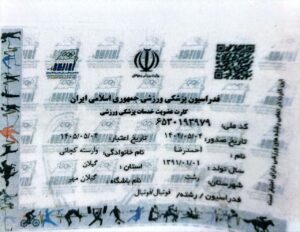 فدراسیون پزشکی ورزشی جمهوری اسلامی ایران
کارت عضویت خدمات پزشکی ورزشی
کد ملی: ۶۵۳۰۱۹۳۹۷۹
تاریخ صدور: ۱۴۰۴/۰۵/۰۴ تاریخ اعتبار: ۱۴۰۵/۰۵/۰۴
نام: احمدرضا نام خانوادگی: وارست کجائی
سال تولد: ۱۳۹۱/۰۱/۰۱ استان: گیلان
شهرستان: رشت نام باشگاه: گیلان مهر
فدراسیون / رشته: فوتبال/فوتبال